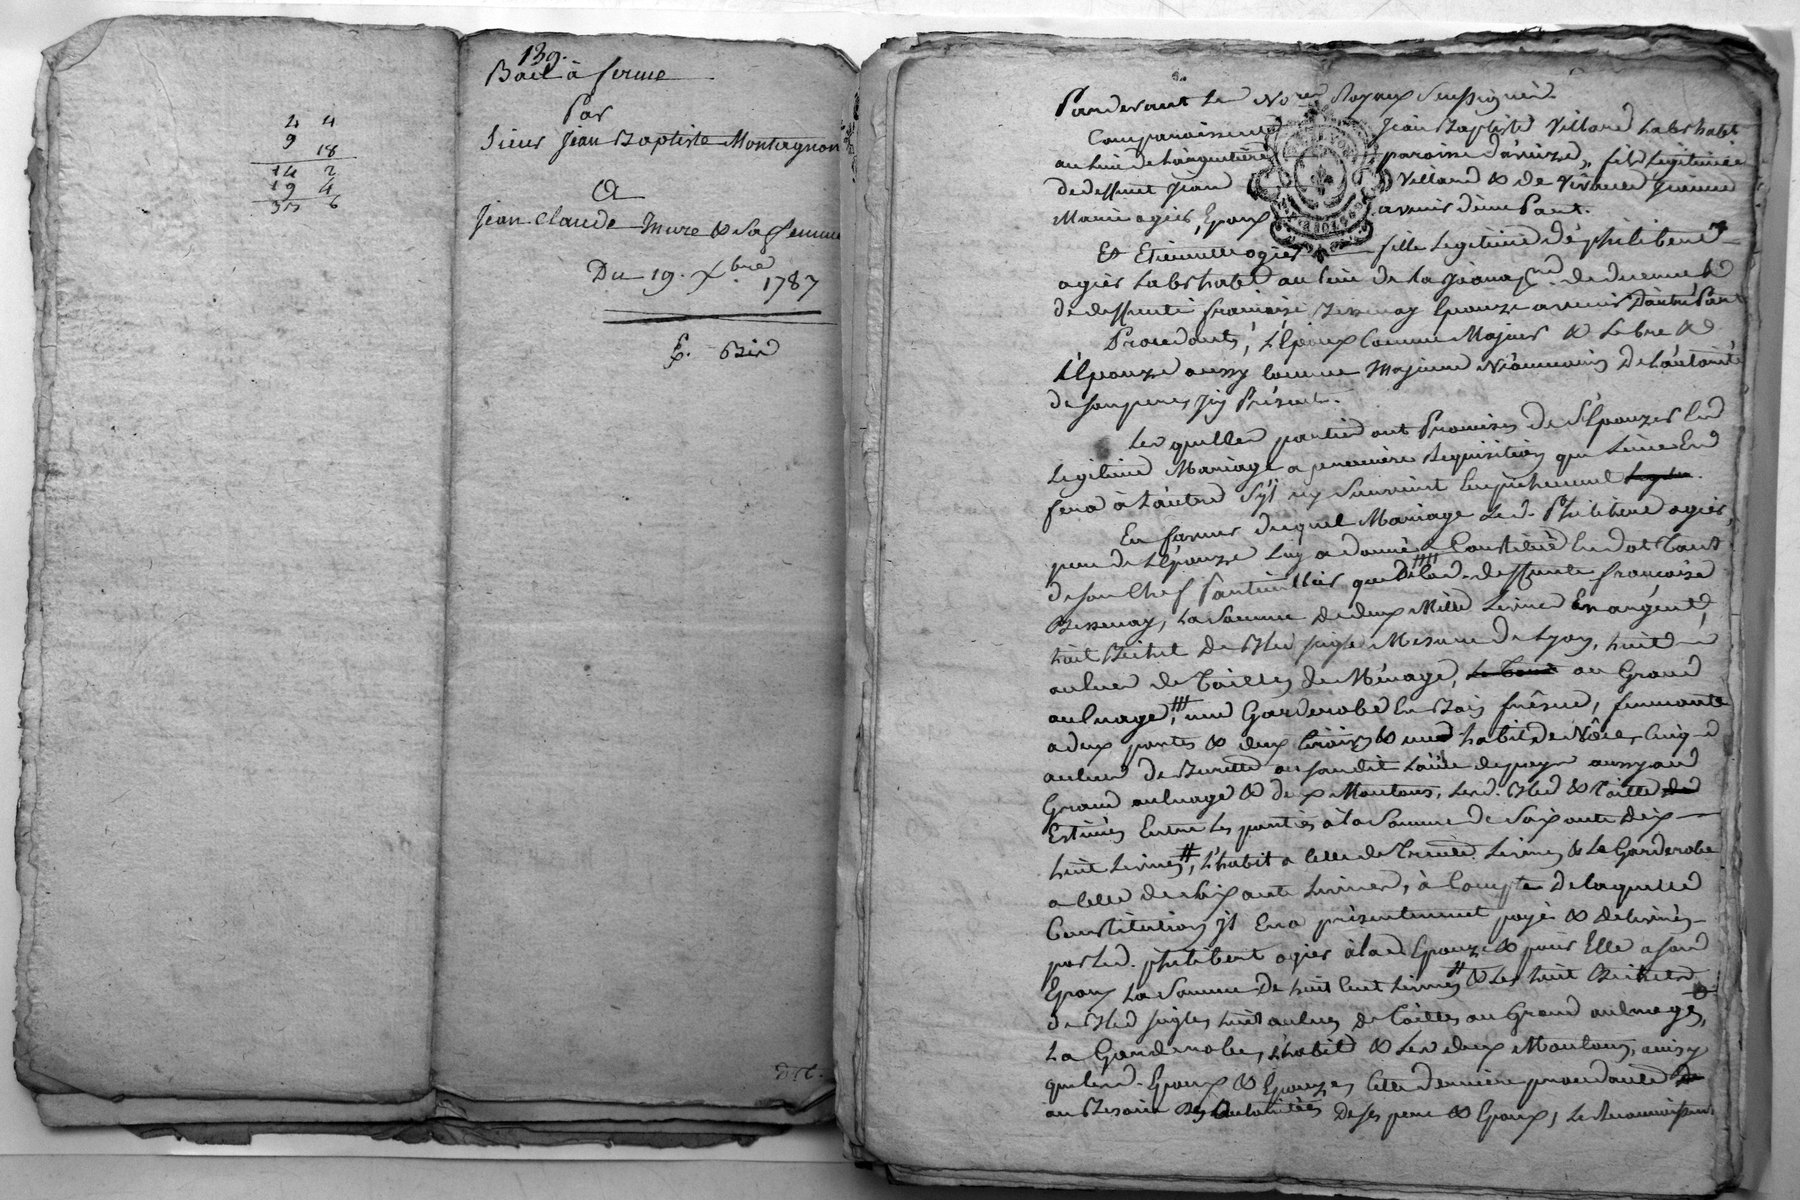 4 4
9 18
14 2
19 4
6
139.
Bail à ferme
Par
Sieur Jean Baptiste Montagnon
A
Jean Claude Mure & Sa femme
Du 19. Xbre 1787
Pardevant Le Nore Royaux Soussigné
Comparaissent Jean Baptiste Villard habitant
au lieu de paroisse fils Legitime
de deffunt Jean Villard & de
Marie agier, Epoux avenir d'une Part.
Et Etiennette ogier fille Legitime de philibert
ogier habitant au lieu de la de
de deffunte françoise Bessenay Epouze avenir D'autre Part
Procedants, L'Epoux Comme Majeur & Libre &
L'Epouze aussy comme Majeure Néanmoins De L'autorité
de son pere, Icy Présent.
Les quelles parties ont Promises de S'Epouzer En
Legitime Mariage a premiere Requisition que L'une En
fera à L'autre S'il n'y Survient Empêchement
En faveur duquel Mariage Led. Philibert ogier,
pere de L'Epouze Luy a donné & Constitué En dot Tant
de son Chef Particulier que de lad. deffunte françoise
Bessenay, La Somme de deux Mille Livres En argent,
huit Bichet De Bled seigle Mesure de Lyon, huit
aulnes de Toilles de Ménage, au Grand
aulnage, une Garderobe En Bois frêne, fermante
a deux portes & deux tiroirs & un habit de Nôce, Cinq
aulnes de Burette
Grand aulnage & deux Moutons, Led. Bled & Toille
Estimés Entre Les parties à la Somme de Soixante Dix
huit Livres, L'habit a celle de Trente Livres & La Garderobe
a celle de Soixante Livres, à Compte De laquelle
Constitution Il En a présentement payé & délivré
par Led. philibert ogier à lad. Epouze & pour Elle a son
Epoux La Somme De huit Cent Livres & Les huit Bichets
de Bled seigle, huit aulnes de Toilles au Grand aulnage,
La Garderobe, L'habit & Les deux Moutons, ainsy
que Led. Epoux & Epouze, Cette derniere procedante
au Besoin Des autorités De ses pere & Epoux, Le Reconnoissent